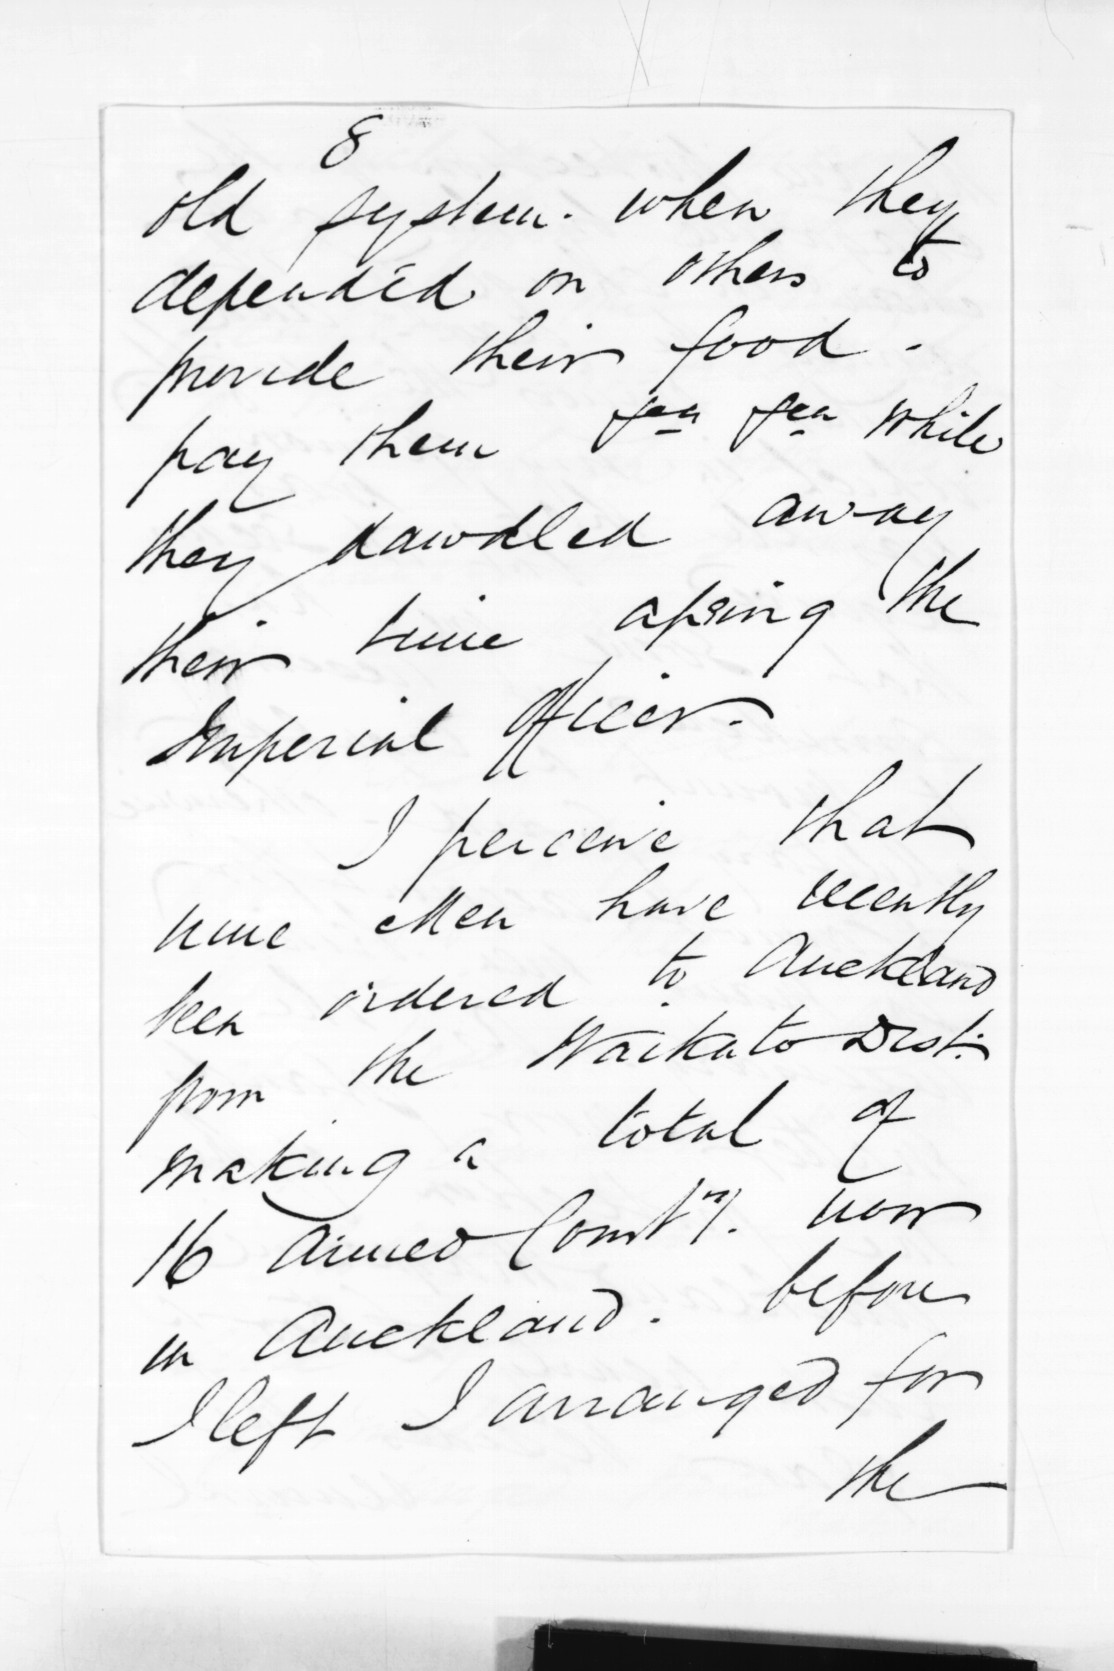 8
old system. when they
depended on others to
provide their food -
pay them &ca &ca while
they dawdled away
their time apeing the
Imperial Officer.
I perceive that
nine Men have recently
been ordered to Auckland
from the Waikato Dist:
making a total of
16 Armed Consty. now
in Auckland. before
I left I arranged for
the